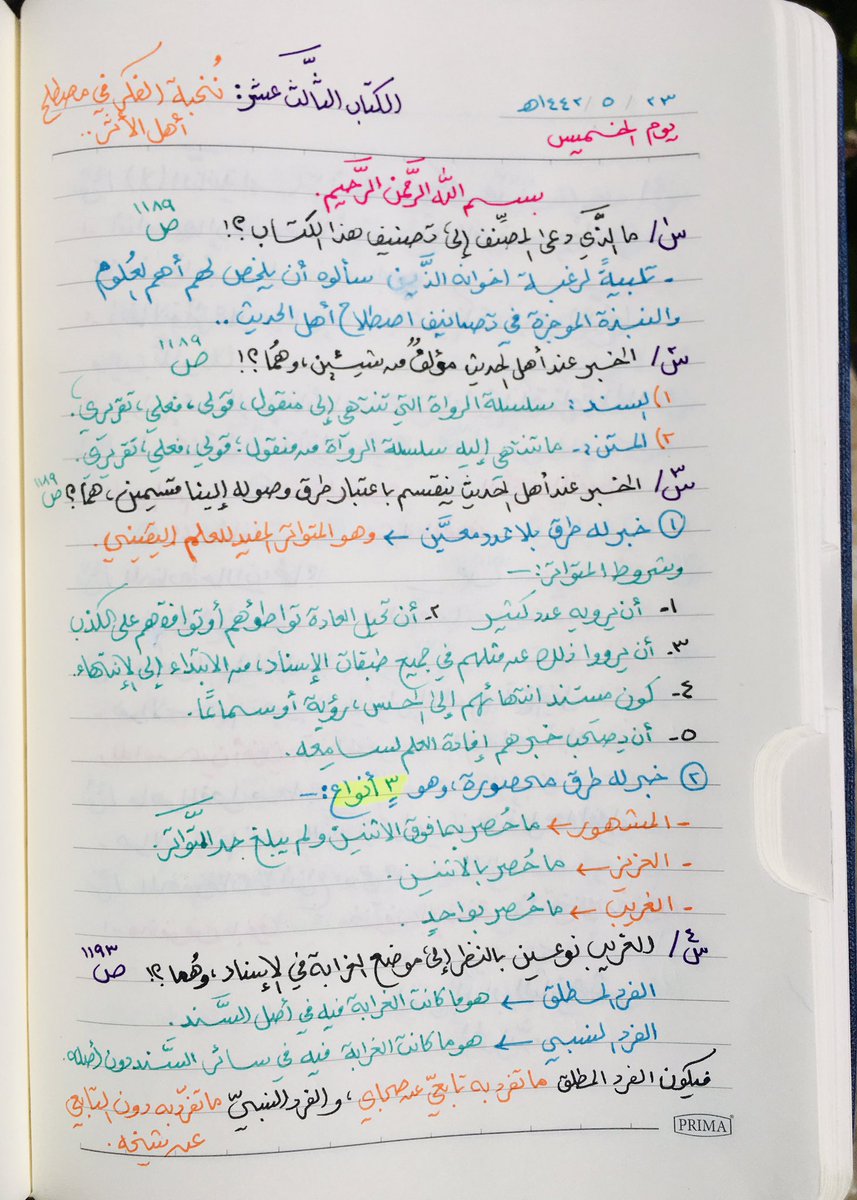 ٢٣ / ٥ / ١٤٤٢هـ
يوم الخميس
الكتاب الثَّالث عشر: نُخبة الفكر في مصطلح
أهل الأثر..
بسم اللّٰه الرَّحمن الرَّحيم.
س١/ ما الَّذي دعى المصنِّف إلى تصنيف هذا الكتاب؟! ص ١١٨٩
- تلبيةً لرغبة اخوانه الذَّين سألوه أن يلخص لهم أهم العُلوم
والنبذة الموجزة في تصانيف اصطلاح أهل الحديث..
س٢/ الخبر عند أهل الحديث مؤلفٌ من شيئين، وهُما؟! ص ١١٨٩
١) السند: سلسلة الرواة التي تنتهي إلى منقول، قولي، فعلي، تقريري.
٢) المتن:- ما تنتهي إليه سلسلة الرواة من منقول؛ قولي، فعلي، تقريري.
س٣/ الخبر عند أهل الحديث ينقسم باعتبار طرق وصوله إلينا قسمين، هُما؟! ص ١١٨٩
① خبر له طرق بلا عدد معيَّن ← وهو المتواتر المفيد للعلم اليقيني.
وشروط المتواتر:-
١- أن يرويه عدد كثير ٢- أن تحيل العادة تواطؤهم أو توافقهم على الكذب
٣- أن يرووا ذلك عن مثلهم في جميع طبقات الإسناد، من الابتداء إلى الإنتهاء.
٤- كون مستند انتهائهم إلى الحس، رؤية أو سماعًا.
٥- أن يصحب خبرهم إفادة العلم لسامعه.
② خبر له طرق محصورة، وهو ٣ أنواع:-
- المشهور ← ما حُصر بما فوق الاثنين ولم يبلغ حد التَّواتر.
- العزيز ← ما حُصر بالاثنين.
- الغريب ← ما حُصر بواحدٍ.
س٤/ للغريب نوعين بالنظر إلى موضع الغرابة في الإسناد، وهُما؟! ص ١١٩٣
الفرد المطلق ← هو ما كانت الغرابة فيه في أصل السَّند.
الفرد النسبي ← هو ما كانت الغرابة فيه في سائر السَّند دون أصله.
فيكون الفرد المطلق ما تفرد به تابعيّ عن صحابي، والفرد النسبيّ ما تفرّد به دون التابعي
عن شيخه.
PRIMA